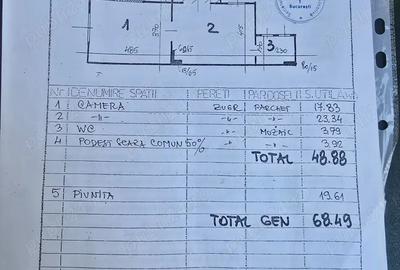 1
București
1
2
3
485
370
455
230
90/65
80/15
Nr DENUMIRE SPATII PERETI PARDOSELI S.UTILA
1 CAMERA ZUGR PARCHET 17.83
2 -"- -"- -"- 23,34
3 WC -"- MOZAIC 3.79
4 PODEST SCARA COMUN 50% -"- -"- 3.92
TOTAL 48.88
5 PIVNITA 19.61
TOTAL GEN 68.49